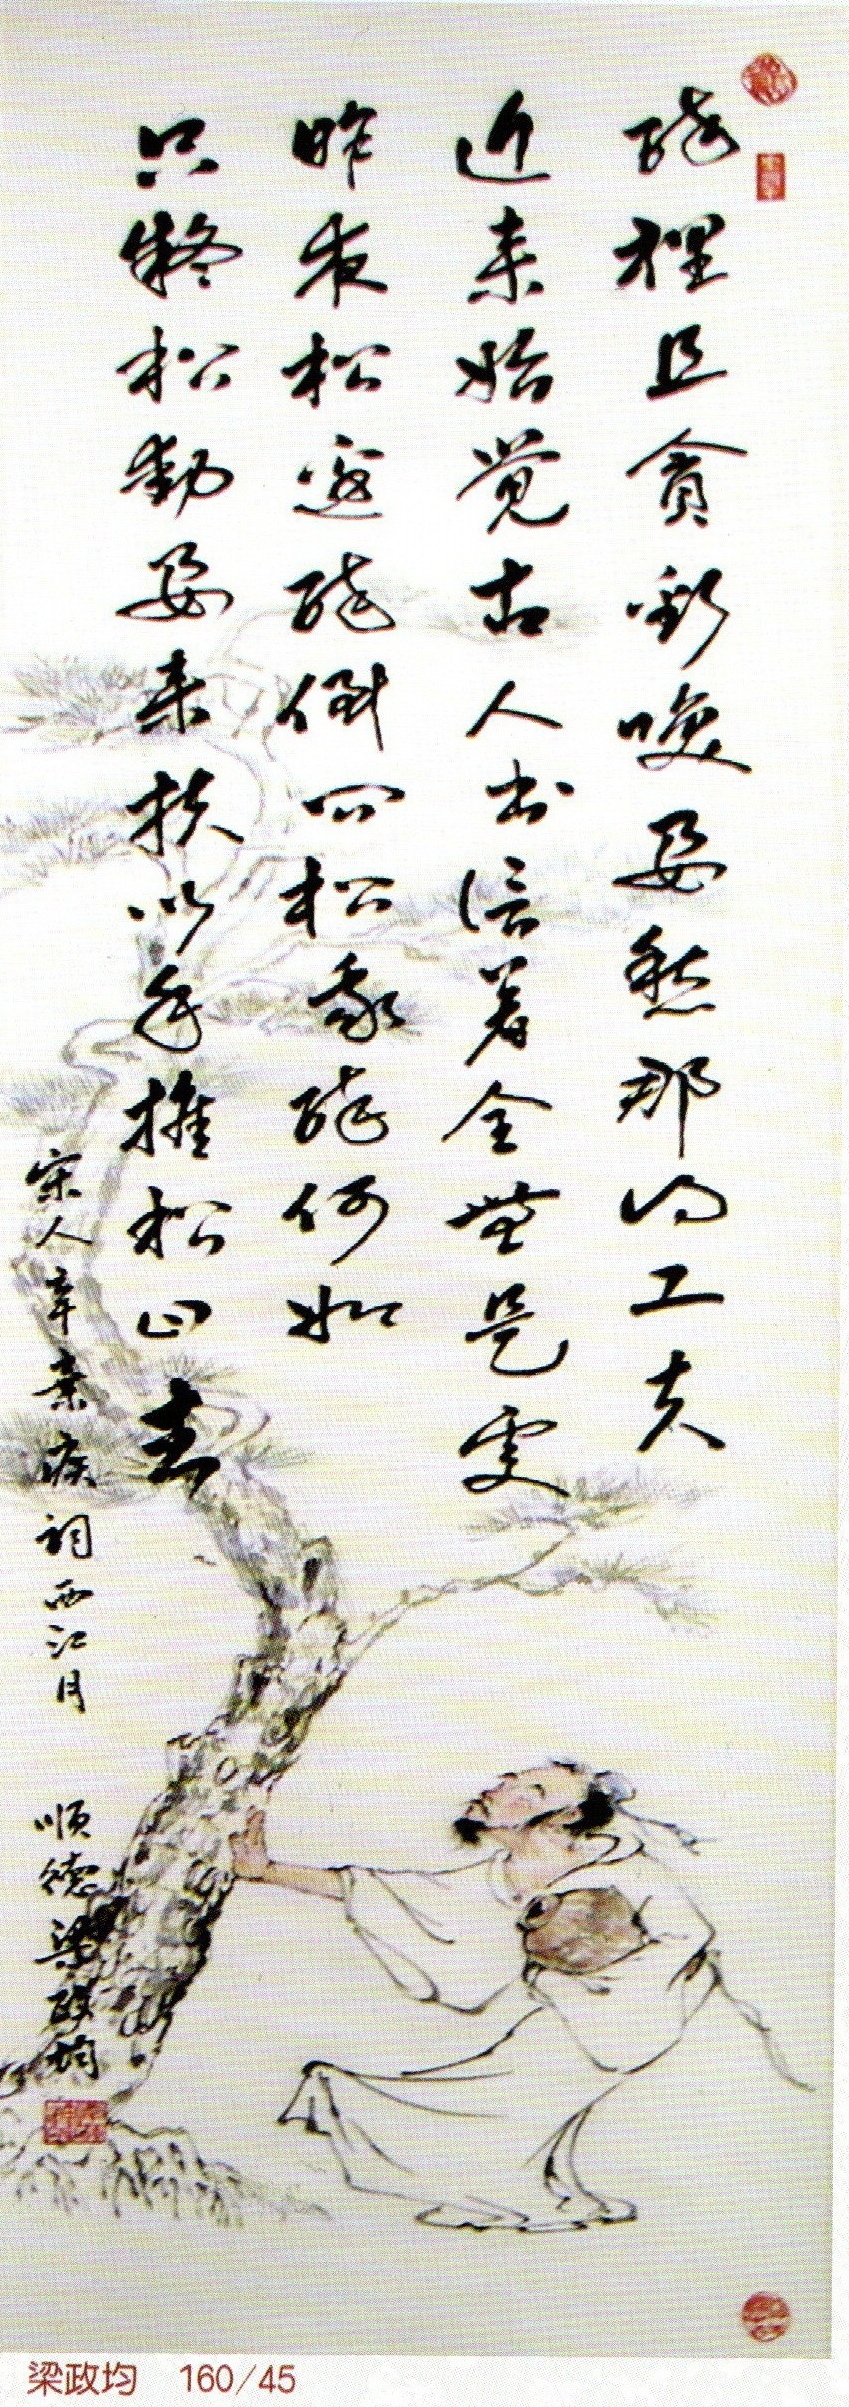 醉裡且貪歡咲要愁那得工夫
近来始覺古人書信着全無是處
昨夜松邊醉倒問松我醉何如
只疑松動要来扶以手推松曰去
宋人辛棄疾詞西江月 順德梁政均
梁政均 160/45